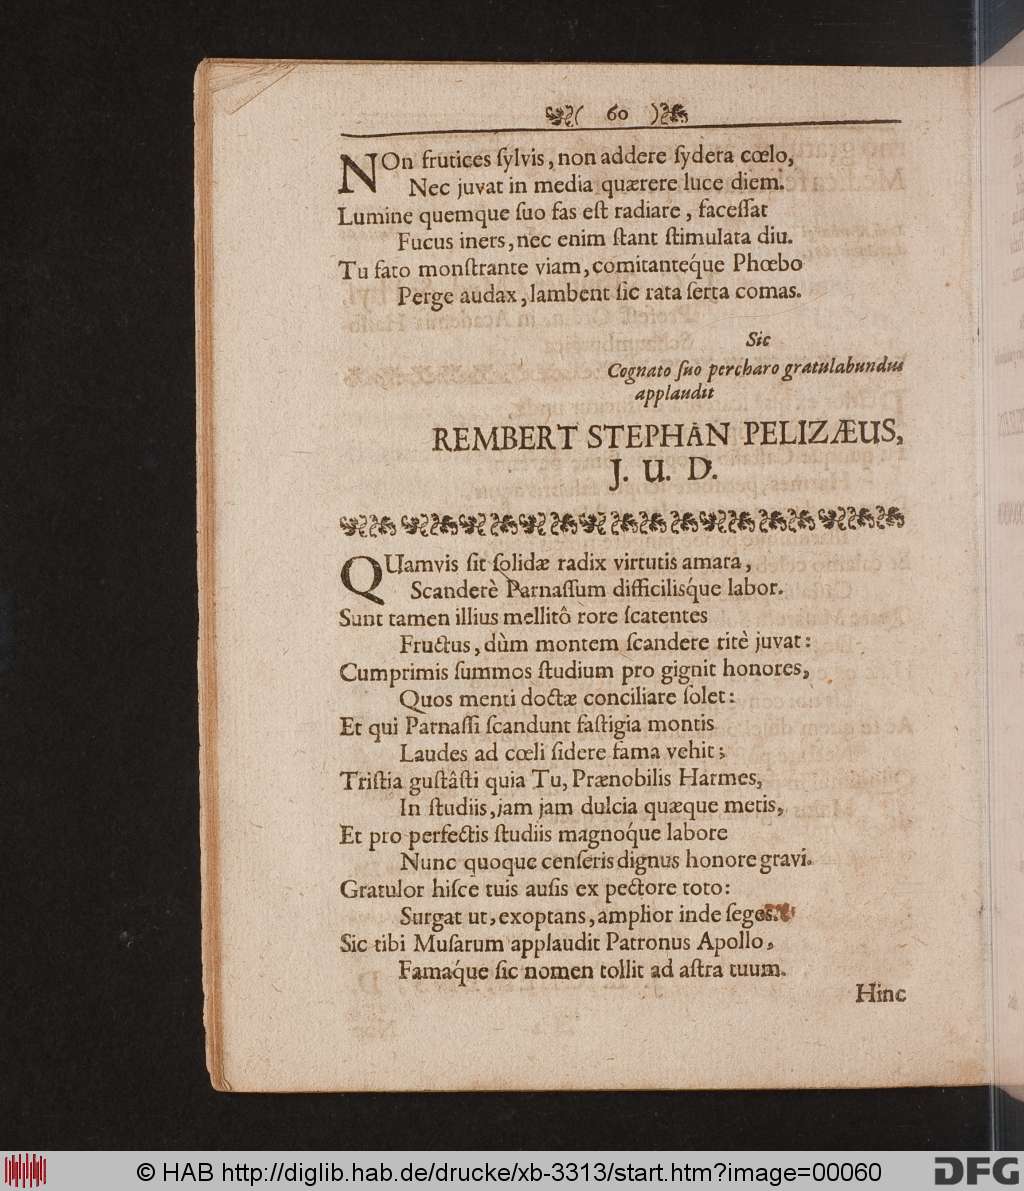 ( 60 )
NOn frutices ſylvis, non addere ſydera cœlo,
Nec juvat in media quærere luce diem.
Lumine quemque ſuo fas eſt radiare, faceſſat
Fucus iners, nec enim ſtant ſtimulata diu.
Tu fato monſtrante viam, comitantéque Phœbo
Perge audax, lambent ſic rata ſerta comas.
Sic
Cognato ſuo percharo gratulabundus
applaudit
REMBERT STEPHAN PELIZÆUS,
J. U. D.
QUamvis ſit ſolidæ radix virtutis amara,
Scanderè Parnaſſum difficilisq́ue labor.
Sunt tamen illius mellitô rore ſcatentes
Fructus, dùm montem ſcandere ritè juvat:
Cumprimis ſummos ſtudium pro gignit honores,
Quos menti doctæ conciliare ſolet:
Et qui Parnaſſi ſcandunt faſtigia montis
Laudes ad cœli ſidere fama vehit;
Triſtia guſtâſti quia Tu, Prænobilis Harmes,
In ſtudiis, jam jam dulcia quæque metis,
Et pro perfectis ſtudiis magnoq́ue labore
Nunc quoque cenſeris dignus honore gravi.
Gratulor hiſce tuis auſis ex pectore toto:
Surgat ut, exoptans, amplior inde ſeges.
Sic tibi Muſarum applaudit Patronus Apollo,
Famaq́ue ſic nomen tollit ad aſtra tuum.
Hinc
© HAB http://diglib.hab.de/drucke/xb-3313/start.htm?image=00060
DFG